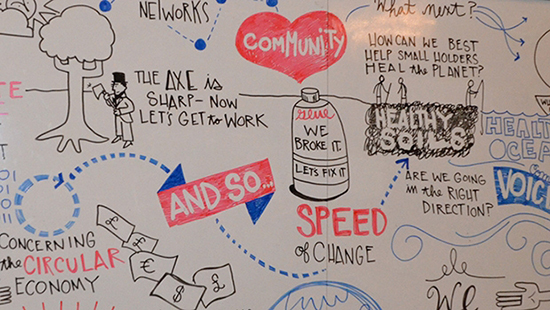 NETWORKS
What next?
COMMUNITY
HOW CAN WE BEST
HELP SMALL HOLDERS
HEAL the PLANET?
THE AXE is
SHARP - NOW
LET'S GET to WORK
glue
WE
BROKE IT.
LETS FIX IT
HEALTHY
SOILS
HEALTH
OCEA
VOIC
AND SO...
ARE WE GOING
iN the RIGHT
DIRECTION?
SPEED
of CHANGE
CONCERNING
the CIRCULAR
ECONOMY
£
£
€
$
£
We